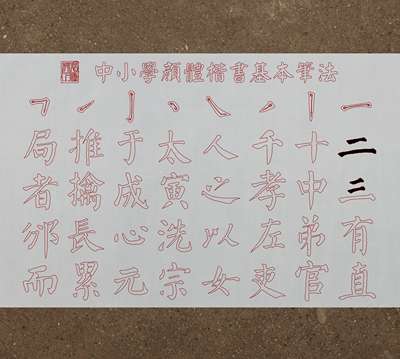 中小學顏體楷書基本筆法
一二三有直
丨十中弟官
丿千孝左吏
㇏人之以女
丶太寅洗宗
亅于成心元
㇀推擒長累
㇕局者而